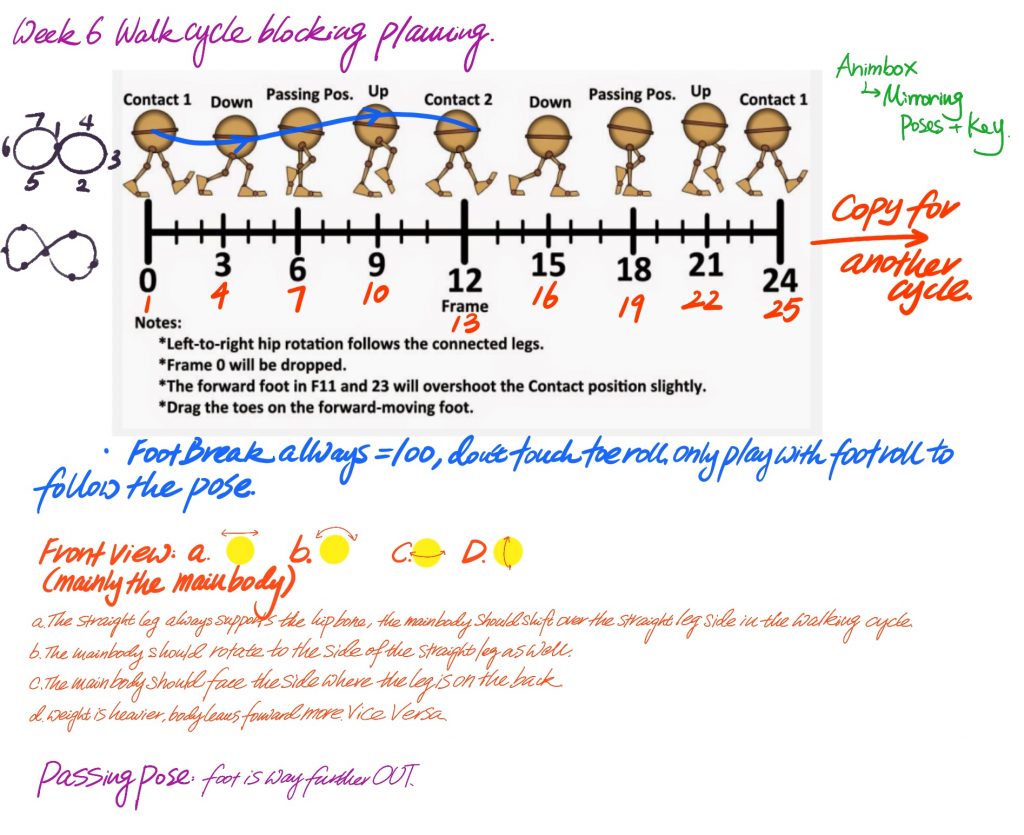 Week 6 Walk cycle blocking planning.
Animbox
Mirroring
Poses + Key.
Contact 1 Down Passing Pos. Up Contact 2 Down Passing Pos. Up Contact 1
7 4
6 3
5 2
0 3 6 9 12 15 18 21 24
1 4 7 10 13 16 19 22 25
Frame
Copy for
another
cycle.
Notes:
*Left-to-right hip rotation follows the connected legs.
*Frame 0 will be dropped.
*The forward foot in F11 and 23 will overshoot the Contact position slightly.
*Drag the toes on the forward-moving foot.
· Foot Break always = 100, don't touch toe roll. only play with foot roll to
follow the pose.
Front view: a. b. C. D.
(mainly the main body)
a. The straight leg always supports the hip bone, the mainbody should shift over the straight leg side in the walking cycle.
b. The mainbody should rotate to the side of the straight leg as well.
C. The main body should face the side where the leg is on the back
d. weight is heavier, body leans forward more. Vice Versa
Passing pose: foot is way further OUT.